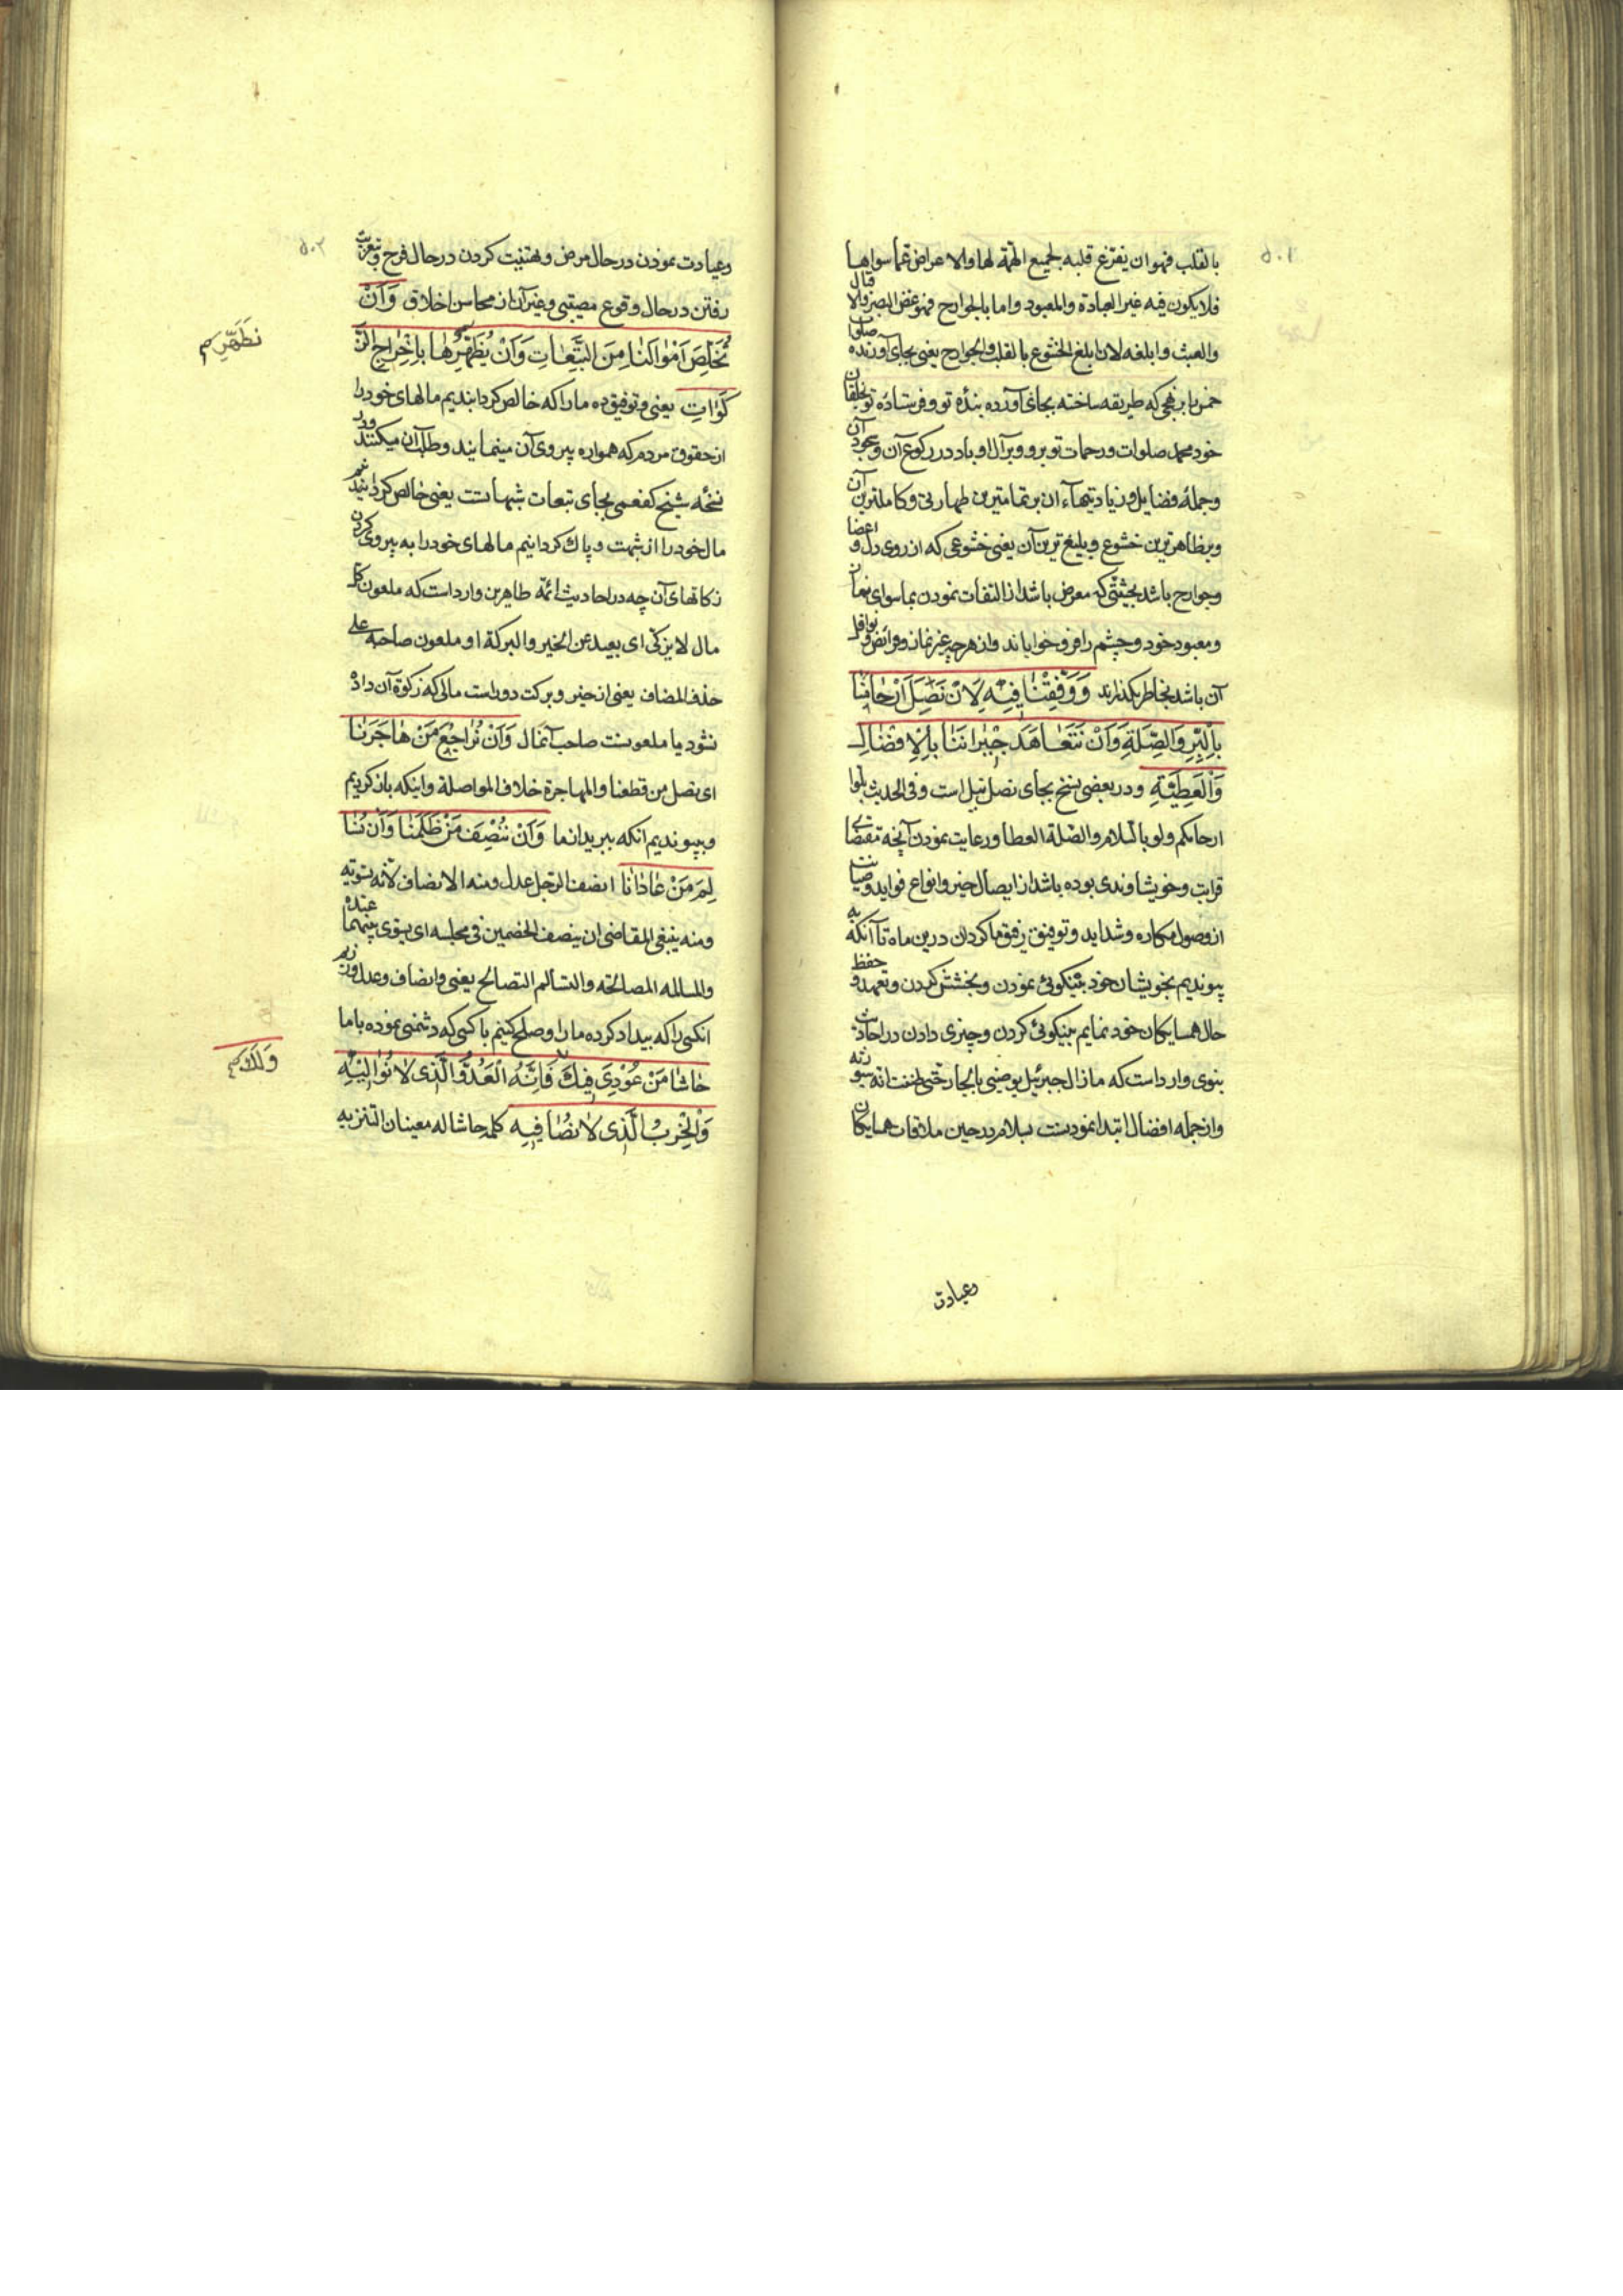 ۵۰۱
بالقلب فهو ان يفرّغ قلبه لجميع الهمّة لها والاعراض عمّا سواها
فلا يكون فيه غير العبادة والمعبود واما بالجوارح فهو غض البصر والاقبال
والعبث وابلغه لان ابلغ الخشوع بالقلب والجوارح يعنى بجاى آورنده صلوات
خمس بر نهجى كه طريقه ساخته بجاى آورده بندهٔ تو و فرستادهٔ تو بخلقان
خود محمد صلوات و رحمات تو برو و بر آل او باد در ركوع آن و سجود آن
و جملهٔ فضايل و زيادتيهاء آن بر تمامترين طهارتى و كاملترين آن
و بر ظاهرترين خشوع و بليغ ترين آن يعنى خشوعى كه از روى دل و اعضا
و جوارح باشد بحيثيتى كه معرض باشد از التفات نمودن بماسواى نماز
و معبود خود و چشم را فرو خواباند و از هر چه غير نماز و فرائض و نوافل
آن باشد بخاطر نگذراند وَوَفِّقْنٰا فيٖهِ لِاَنْ نَصِلَ اَرْحٰامَنٰا
بِالْبِرِّ وَالصِّلَةِ وَاَنْ نَتَعٰاهَدَ جٖيرٰانَنٰا بِالْاِفْضٰالِ
وَالْعَطِيَّةِ و در بعضى نسخ بجاى نصل نبل است و فى الحديث بلّوا
ارحامكم ولو بالسّلام والصّلة العطا و رعايت نمودن آنچه مقتضاى
قرابت و خويشاوندى بوده باشد از ايصال خير و انواع فوايد و صيانت
از وصول مكاره و شدايد و توفيق رفيق ما كردان درين ماه تا آنكه به
پيونديم بخويشان خود بنيكوئى نمودن و بخشش كردن و تعهد و حفظ
حال همسايكان خود نمايم بنيكوئى كردن و چيزى دادن در احاديث
نبوى وارد است كه ما زال جبرئيل يوصينى بالجار حتى ظننت انه سيورثه
و از جمله افضال ابتدا نمودنست بسلام در حين ملاقات همسايكان
وعيادت
۵۰۲
وعيادت نمودن در حال مرض و تهنيت كردن در حال فرح و بتعزيت
رفتن در حال وقوع مصيبتى و غير آن از محاسن اخلاق وَاَنْ
نُخَلِّصَ اَمْوٰالَنٰا مِنَ التَّبِعٰاتِ وَاَنْ نُطَهِّرَهٰا بِاِخْرٰاجِ الزَّ
نطَهِّر م
كَوٰاتِ يعنى و توفيق ده ما را كه خالص كردانيديم مالهاى خود را
از حقوق مردم كه همواره پيروى آن مينمايند و طلب آن ميكنند و در
نسخهٔ شيخ كفعمى بجاى تبعات شبهاتست يعنى خالص كردانيديم
مال خود را از شبهت و پاك كردانيم مالهاى خود را به پيروى كردن
زكاتهاى آن چه در احاديث ائمّهٔ طاهرين وارد است كه ملعون كل
مال لا يزكّى اى بعيد عن الخير والبركة او ملعون صاحبه على
حذف المضاف يعنى از خير و بركت دور است مالى كه زكوة آن داده
نشود يا ملعونست صاحب آنمال وَاَنْ نُرٰاجِعَ مَنْ هٰاجَرَنٰا
اى نصل من قطعنا والمهاجرة خلاف المواصلة و اينكه باز كرديم
و بپيونديم آنكه ببريد از ما وَاَنْ نُنْصِفَ مَنْ ظَلَمَنٰا وَاَنْ نُسٰا
لِمَ مَنْ عٰادٰانٰا انصف الرجل عدل ومنه الانصاف لانّه تسويه
ومنه ينبغى للقاضى ان ينصف الخصمين فى مجلسه اى يسوّى بينهما عنده
والمسالمه المصالحة والتسالم التصالح يعنى و انصاف و عدل ورزيم
انكسى را كه بيداد كرده ما را و صلح كنيم با كسى كه دشمنى نموده با ما
حٰاشٰا مَنْ عُوْدِىَ فيٖكَ فَاِنَّهُ الْعَدُوُّ الَّذٖى لٰا نُوٰاليٖهِ
وَلَكَ م
وَالْحِزْبُ الَّذٖى لٰا نُصٰافيٖهِ كلمه حاشا له معنيان التنزيه